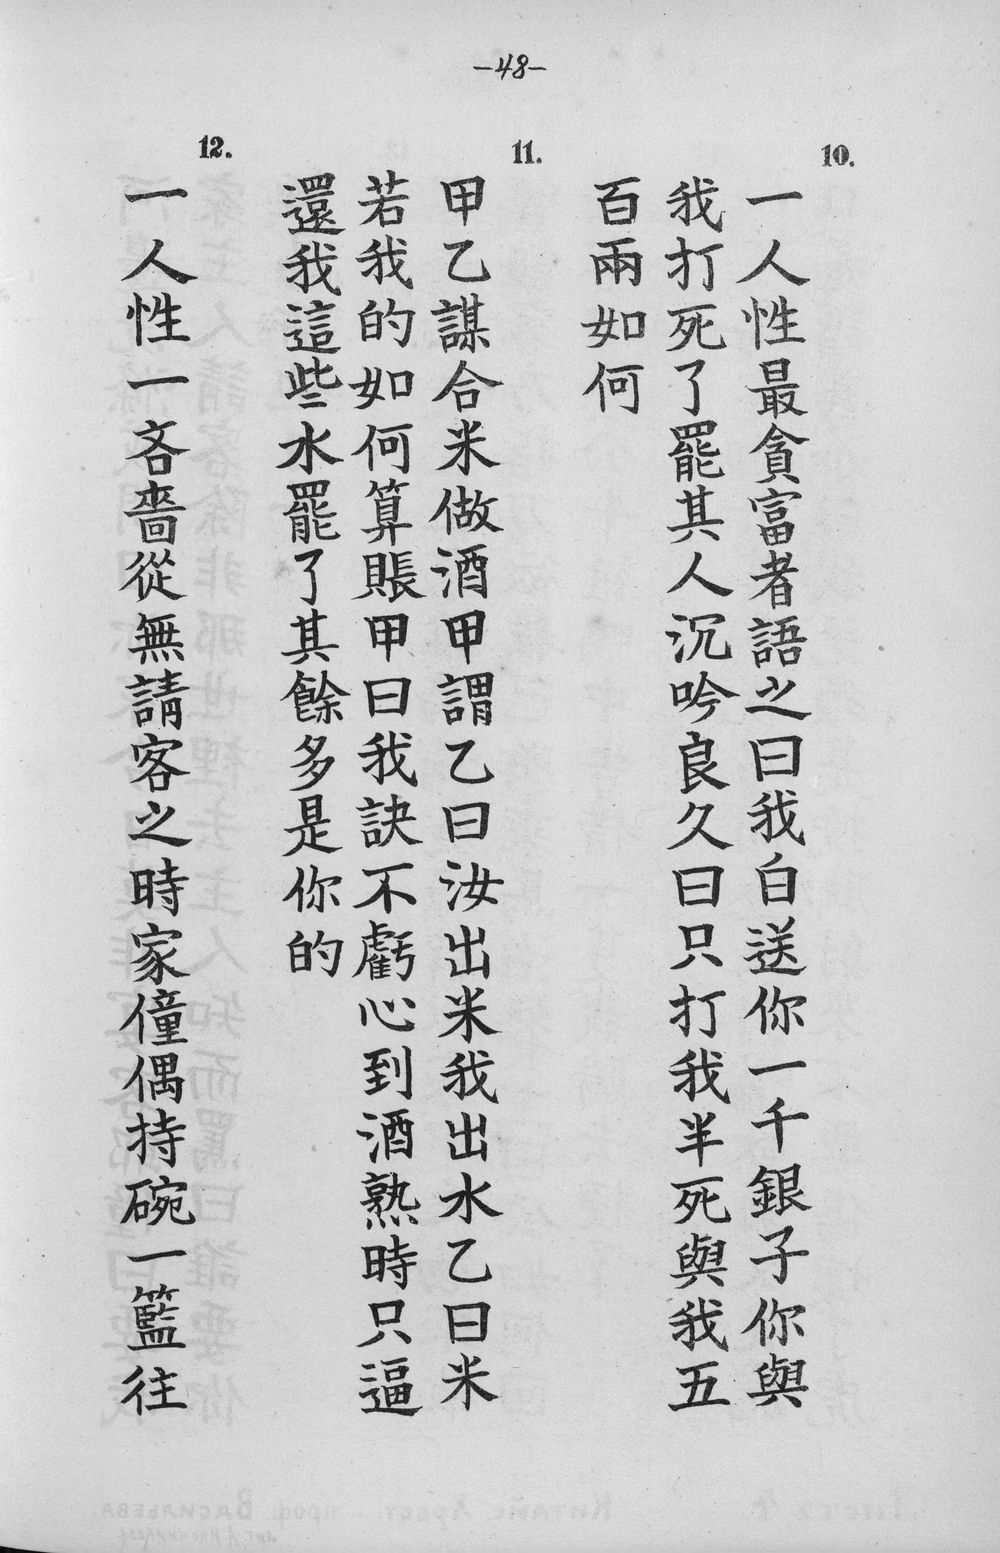 -48-
10.
一人性最貪富者語之曰我白送你一千銀子你與
我打死了罷其人沉吟良久曰只打我半死與我五
百兩如何
11.
甲乙謀合米做酒甲謂乙曰汝出米我出水乙曰米
若我的如何算賬甲曰我訣不虧心到酒熟時只逼
還我這些水罷了其餘多是你的
12.
一人性一吝嗇從無請客之時家僮偶持碗一籃往